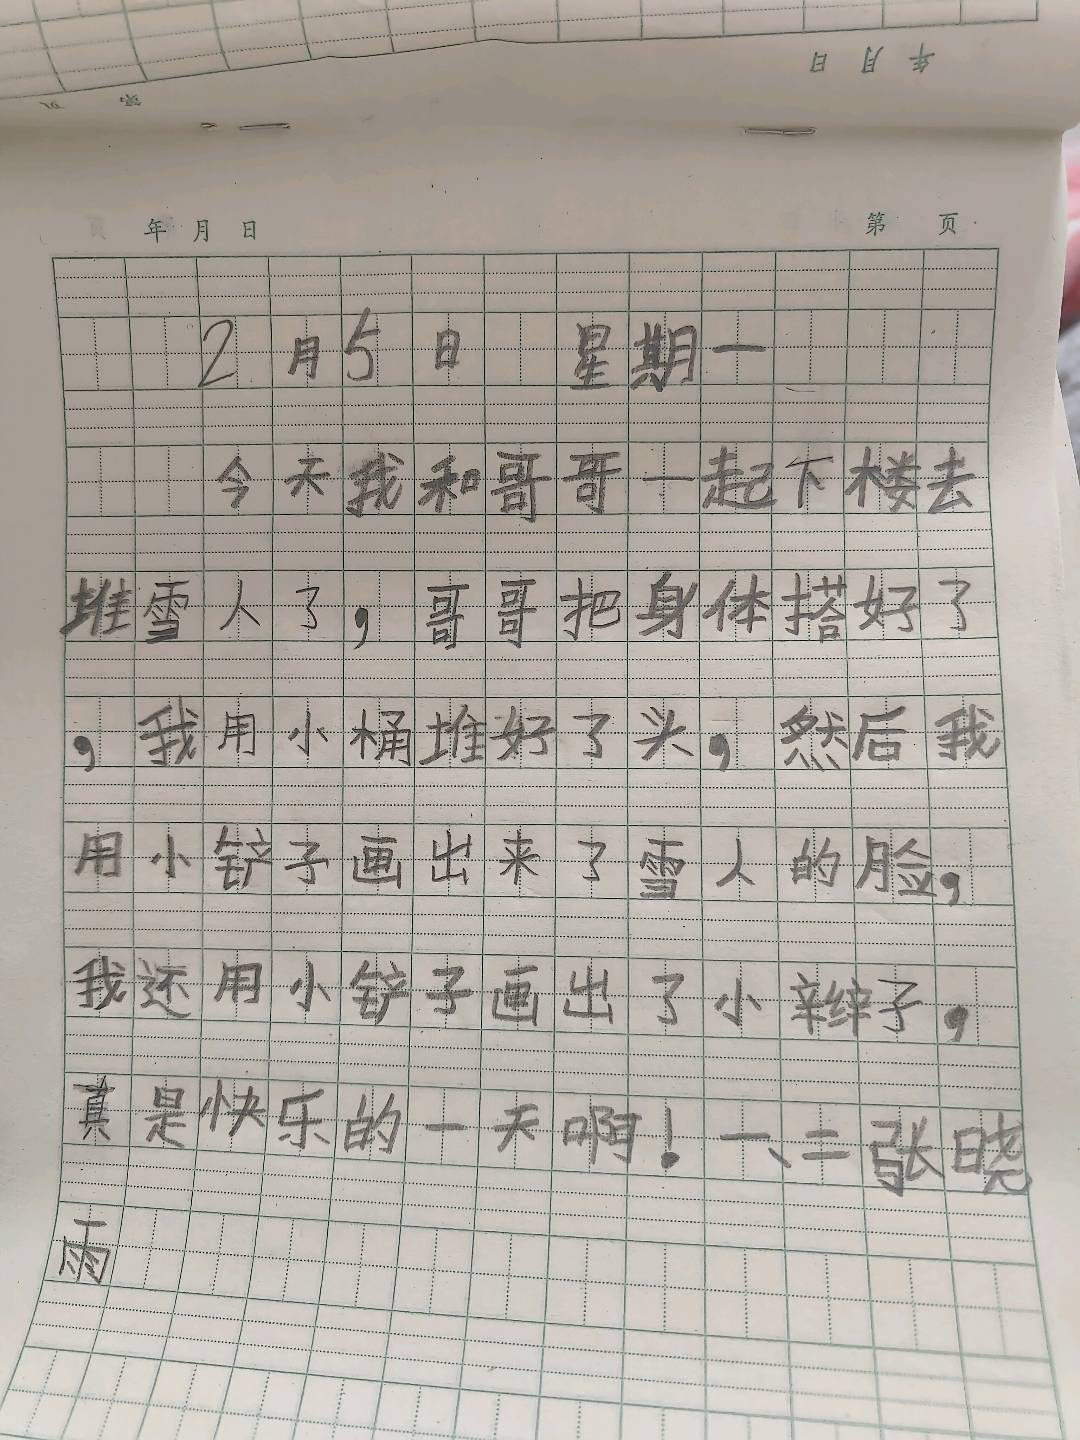 年 月 日
第 页
年 月 日
第 页
2月5日 星期一
今天我和哥哥一起下楼去
堆雪人了,哥哥把身体搭好了
,我用小桶堆好了头,然后我
用小铲子画出来了雪人的脸,
我还用小铲子画出了小辫子,
真是快乐的一天啊!一、二张晓
雨